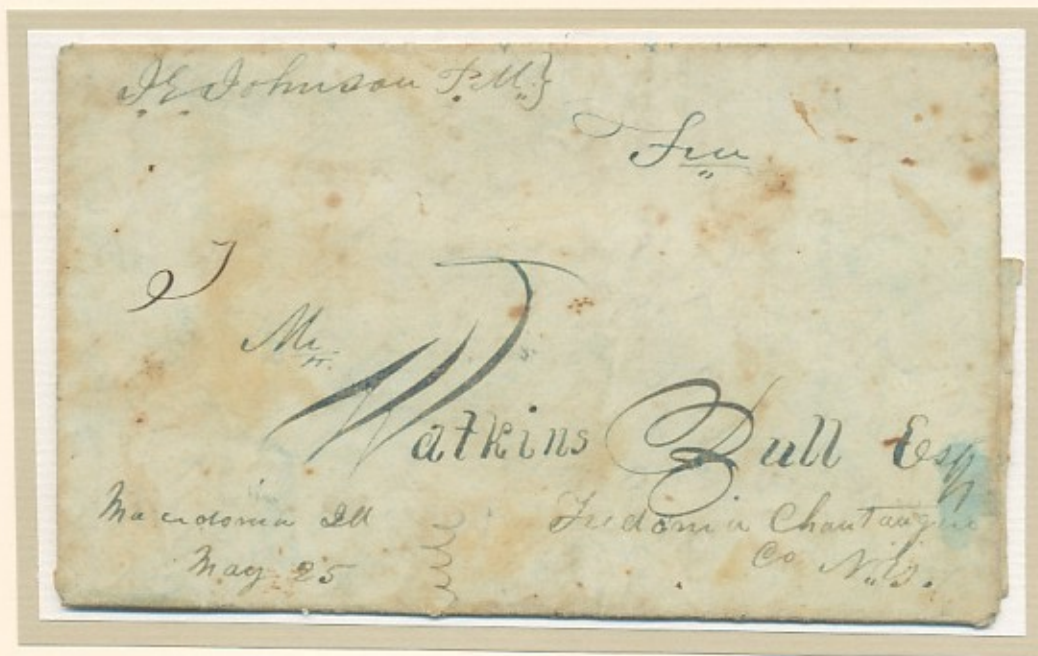 J E Johnson P.M.}
Free
Mr.
Watkins Bull Esq
Macedonia Ill
May 25
Fredonia Chautauque
Co N.Y.